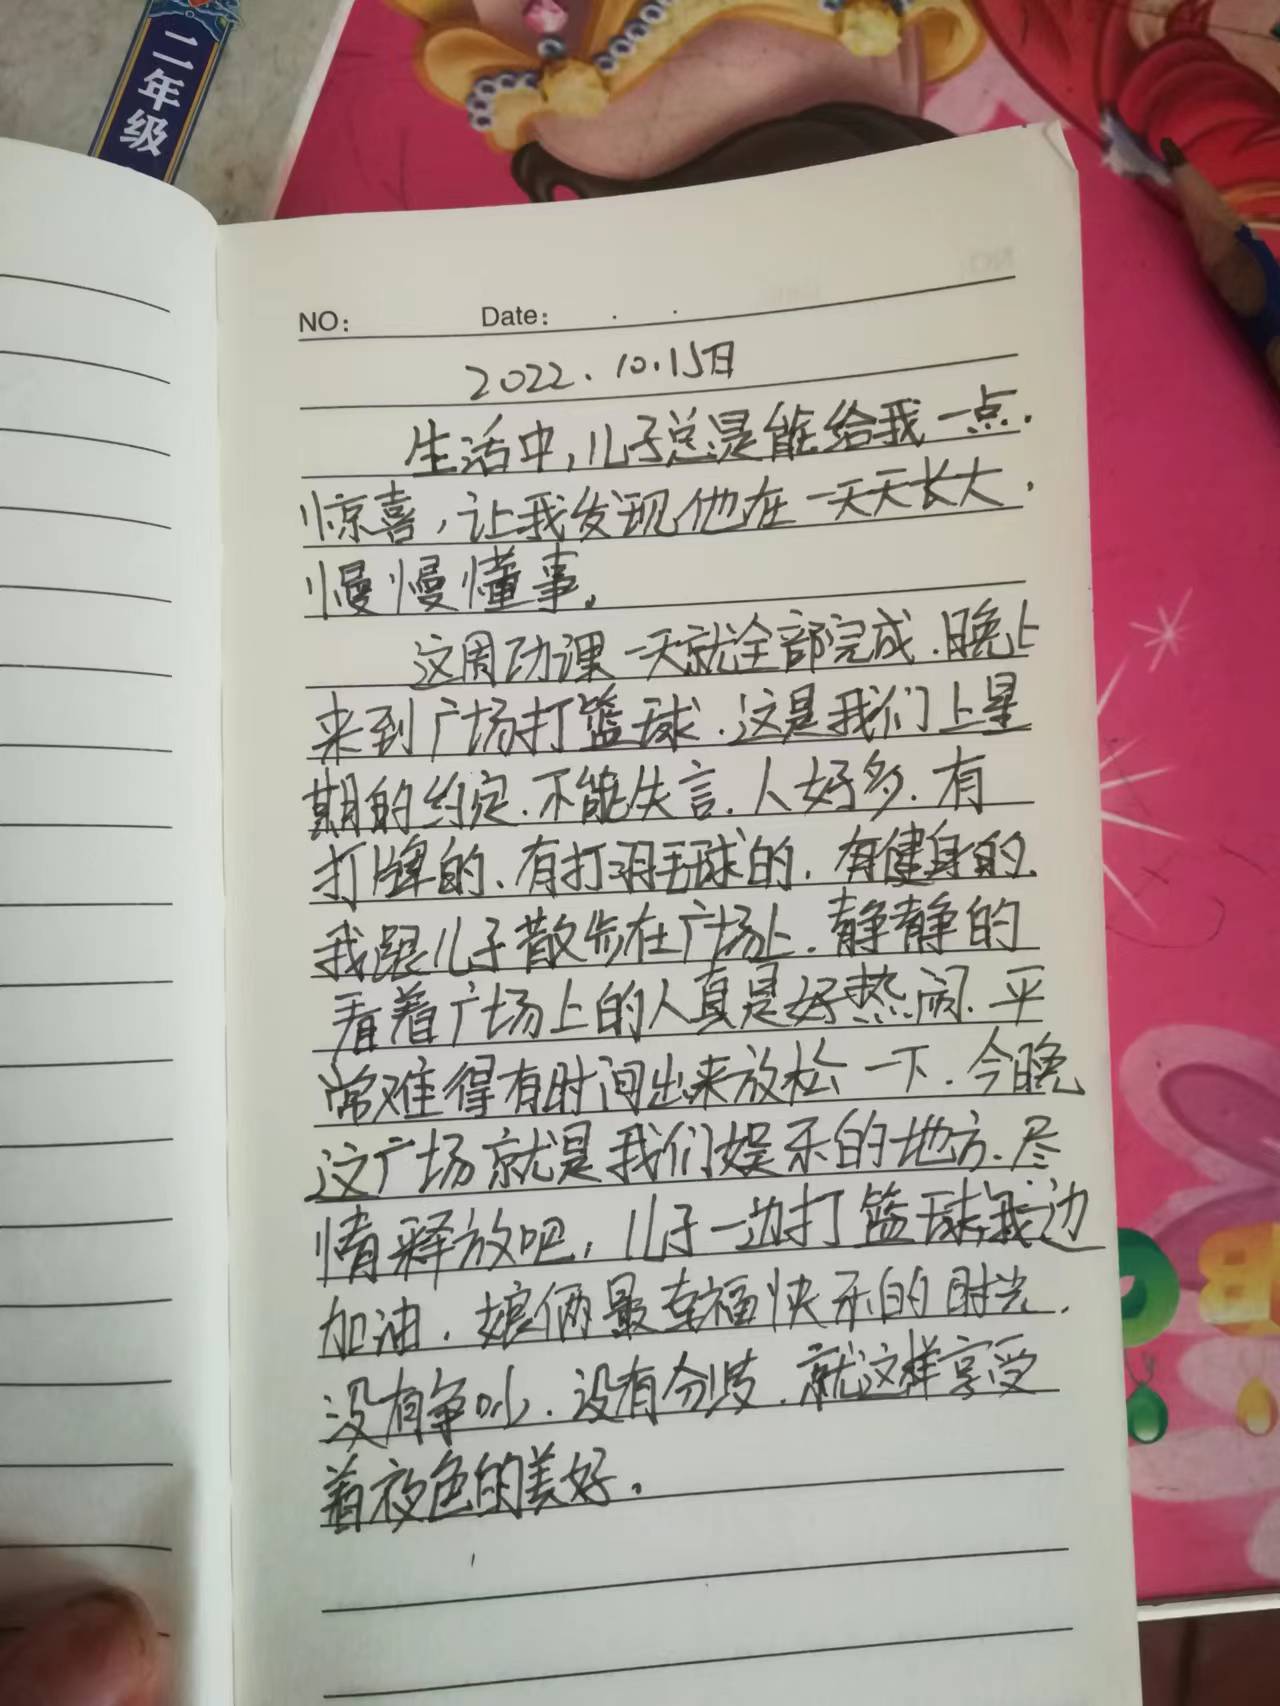 二年级
NO: Date: . .
2022.10.15日
生活中,儿子总是能给我一点.
惊喜,让我发现他在一天天长大.
慢慢懂事。
这周功课一天就全部完成.晚上
来到广场打篮球.这是我们上星
期的约定.不能失言.人好多.有
打牌的.有打羽毛球的.有健身的.
我跟儿子散步在广场上.静静的
看着广场上的人真是好热闹.平
常难得有时间出来放松一下.今晚
这广场就是我们娱乐的地方.尽
情释放吧,儿子一边打篮球,我边
加油.娘俩最幸福快乐的时光.
没有争吵.没有分歧.就这样享受
着夜色的美好.